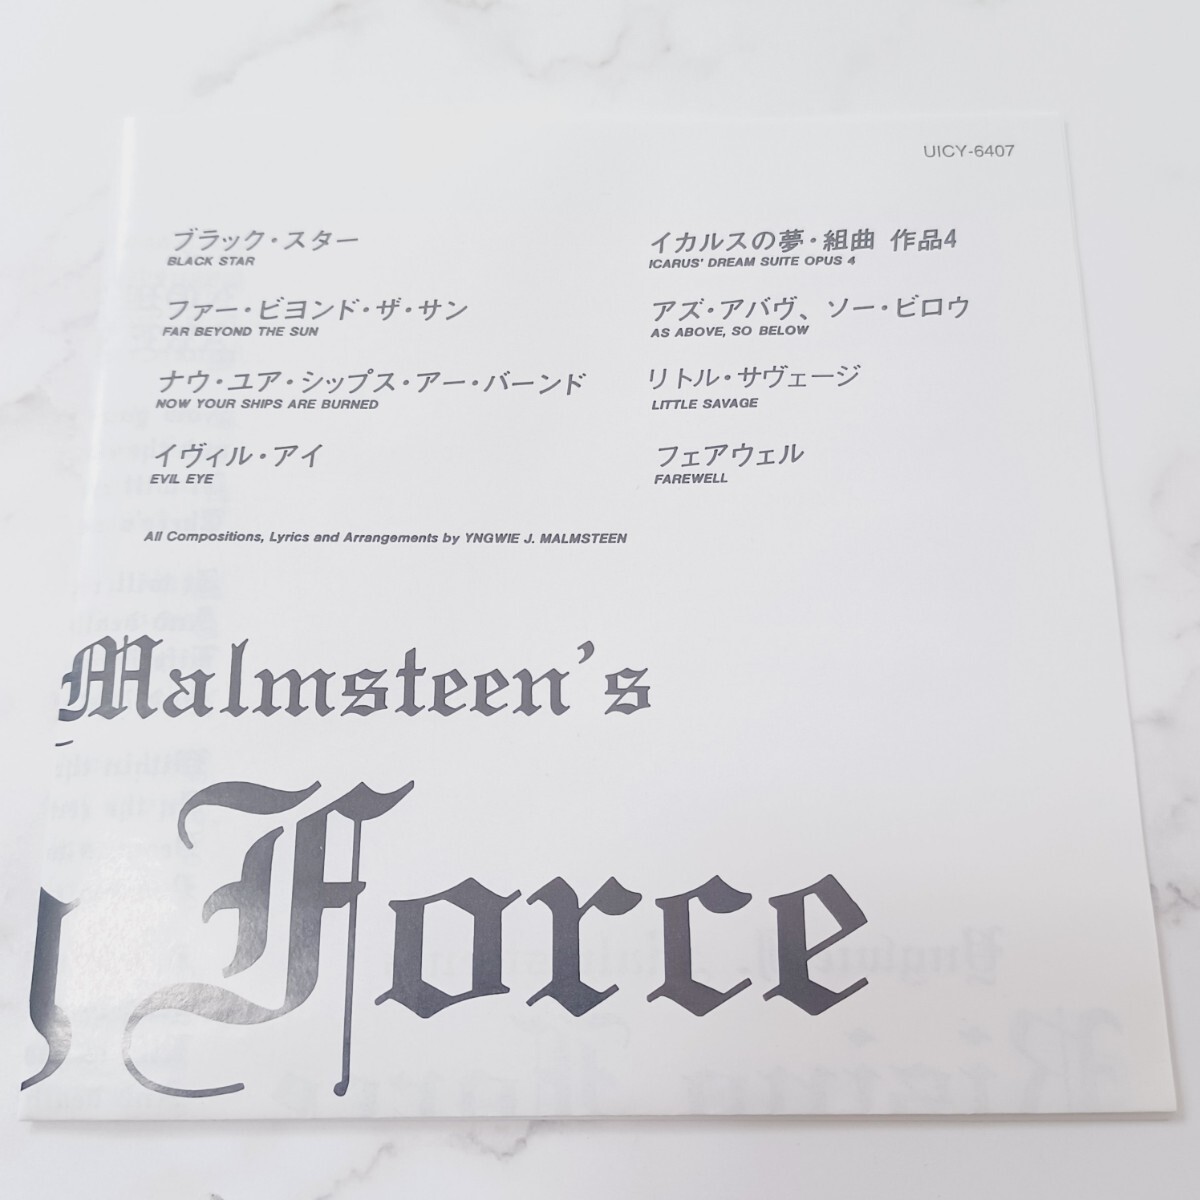 UICY-6407
ブラック・スター
BLACK STAR
ファー・ビヨンド・ザ・サン
FAR BEYOND THE SUN
ナウ・ユア・シップス・アー・バーンド
NOW YOUR SHIPS ARE BURNED
イヴィル・アイ
EVIL EYE
イカルスの夢・組曲 作品4
ICARUS' DREAM SUITE OPUS 4
アズ・アバヴ、ソー・ビロウ
AS ABOVE, SO BELOW
リトル・サヴェージ
LITTLE SAVAGE
フェアウェル
FAREWELL
All Compositions, Lyrics and Arrangements by YNGWIE J. MALMSTEEN
Malmsteen's
Force